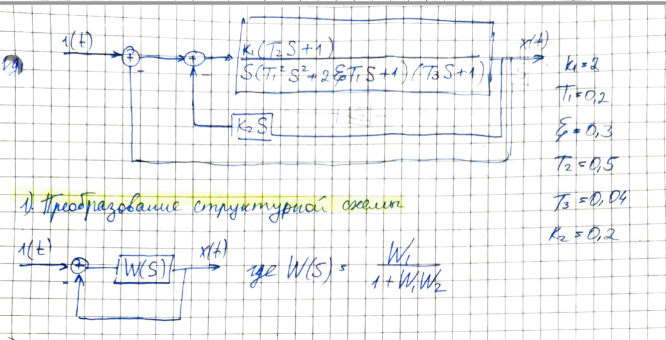 1(t)
x(t)
K₁(T₂S+1)
S(T₁²S²+2ξT₁S+1)(T₃S+1)
-
-
K₂S
K₁=2
T₁=0,2
ξ=0,3
T₂=0,5
T₃=0,04
K₂=0,2
1). Преобразование структурной схемы
1(t)
W(S)
x(t)
-
где W(S)= W₁
1+W₁W₂